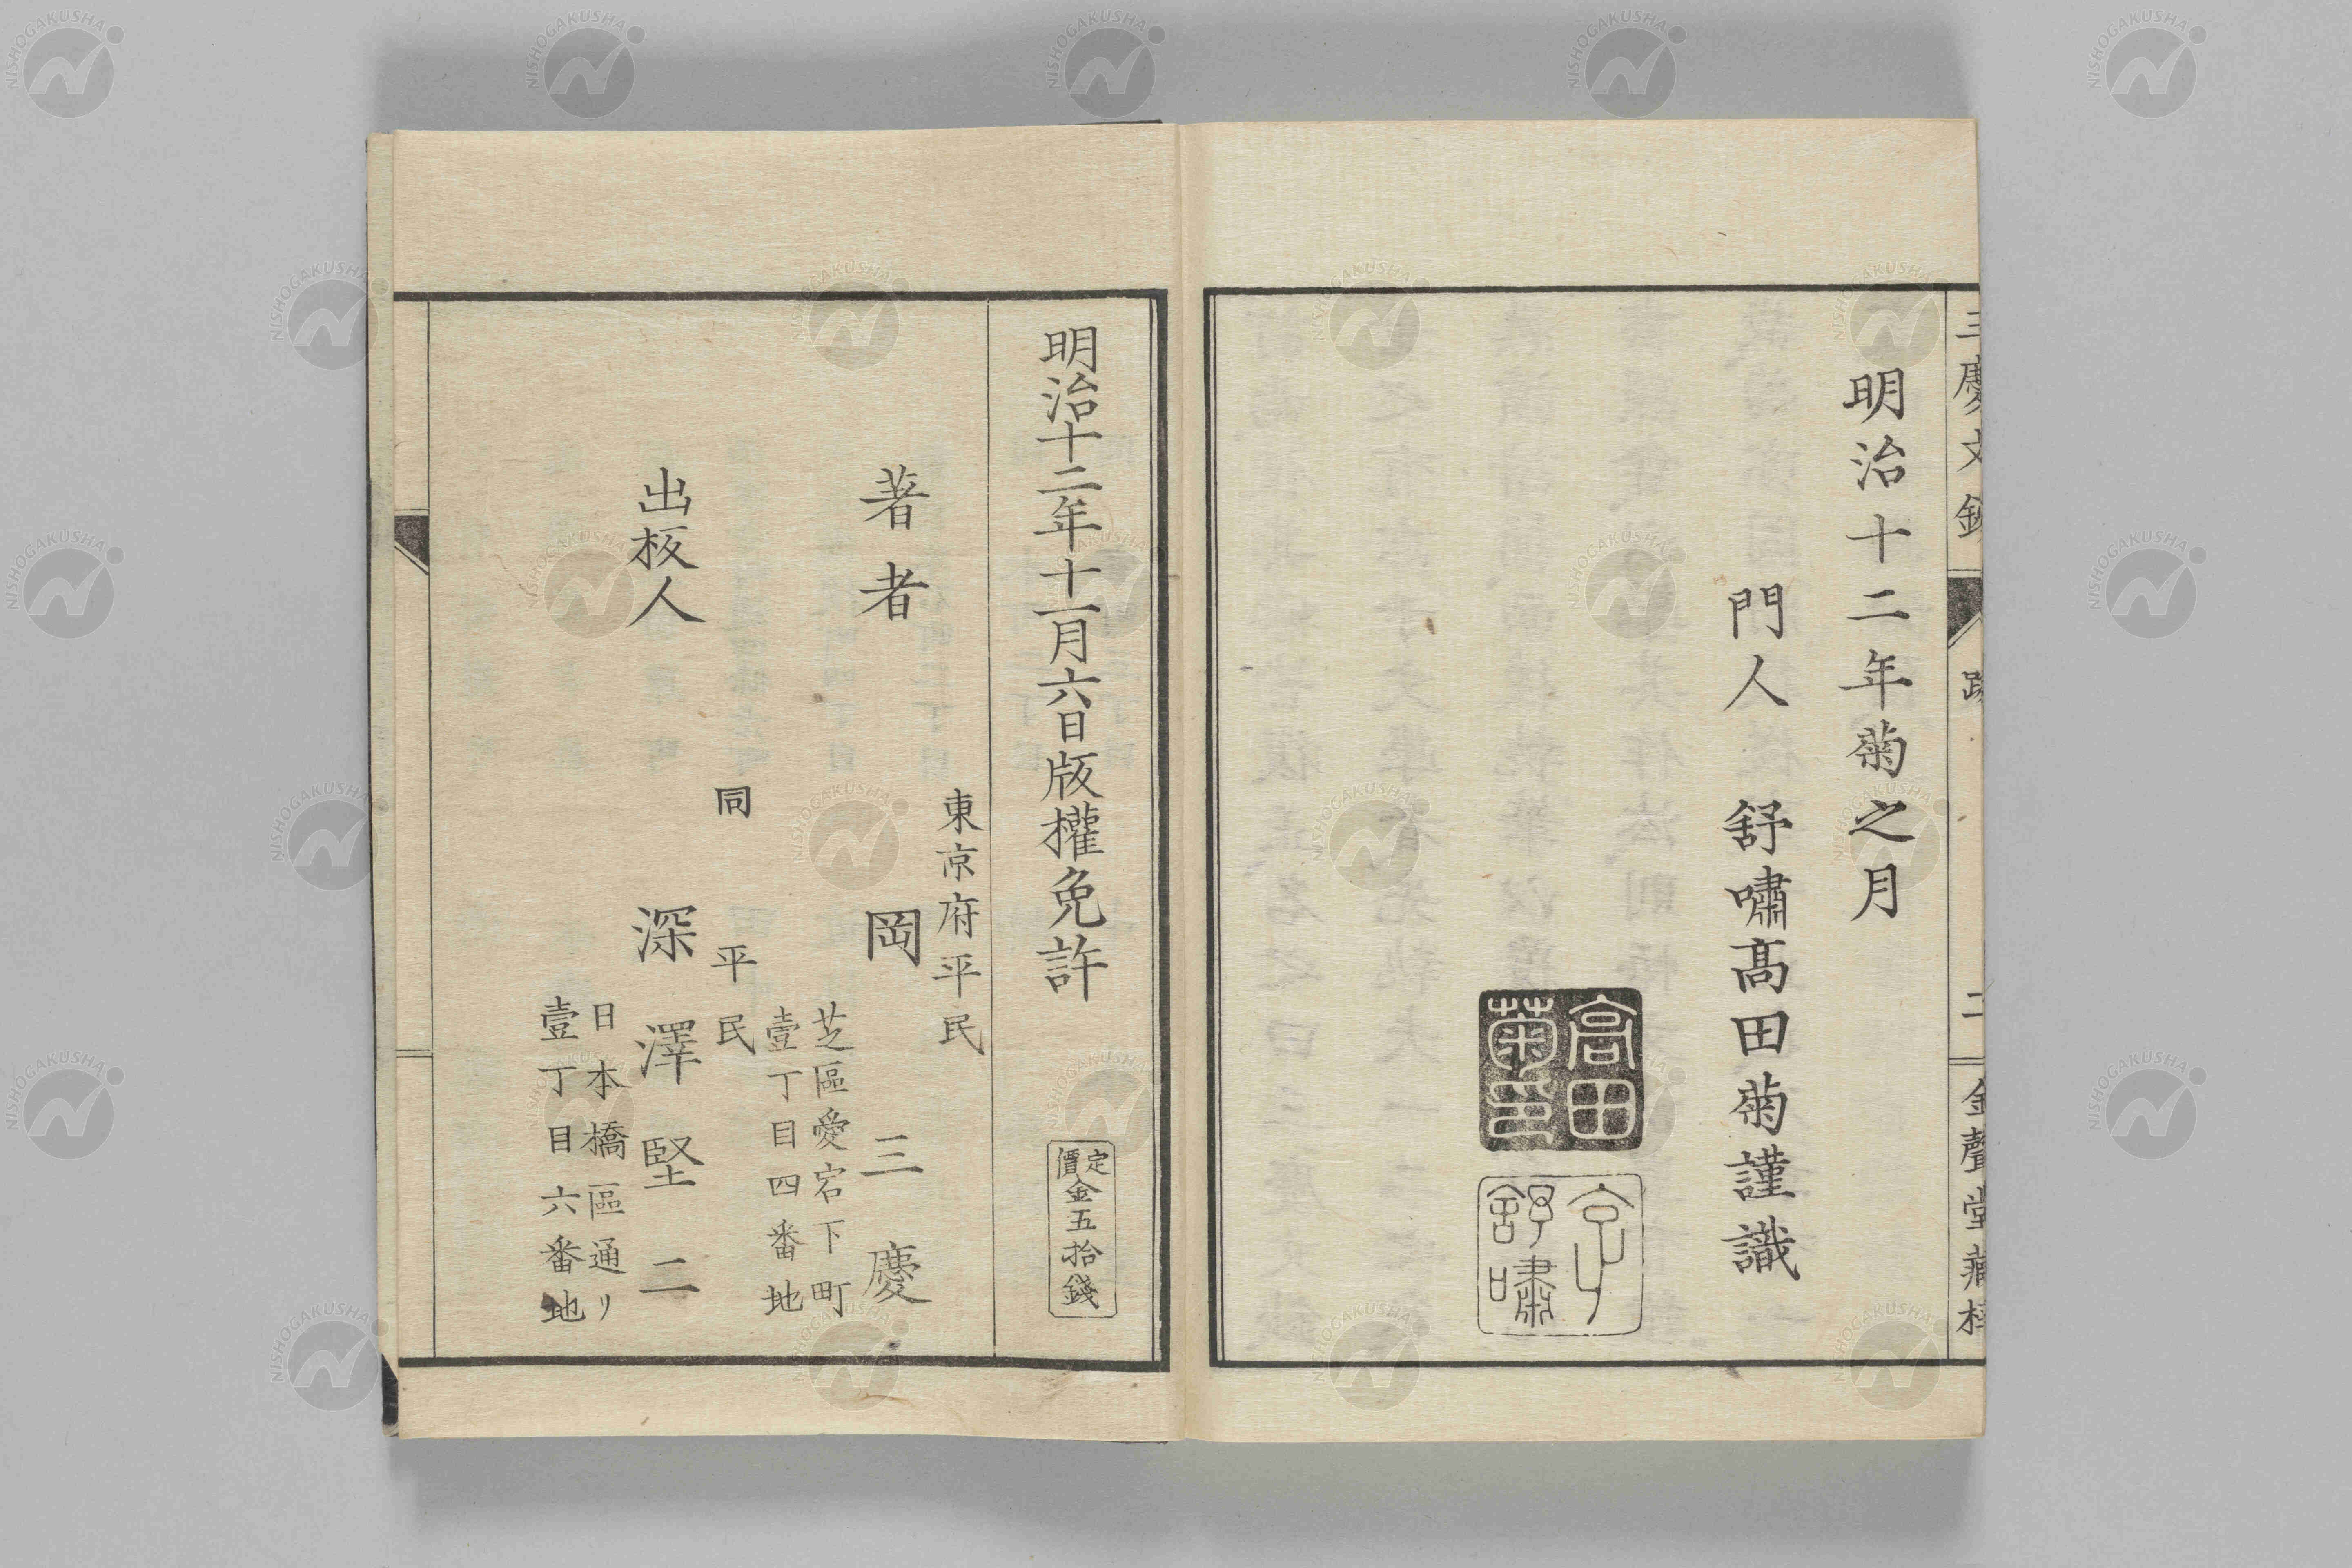 三慶文鈔
跋
二
金聲堂藏梓
明治十二年菊之月
門人 舒嘯髙田菊謹識
高田
菊印
舒嘯
明治十二年十一月六日版權免許
定價金五拾錢
東京府平民
著者 岡三慶
芝區愛宕下町
壹丁目四番地
同 平民
出板人 深澤堅二
日本橋區通リ
壹丁目六番地
NISHOGAKUSHA